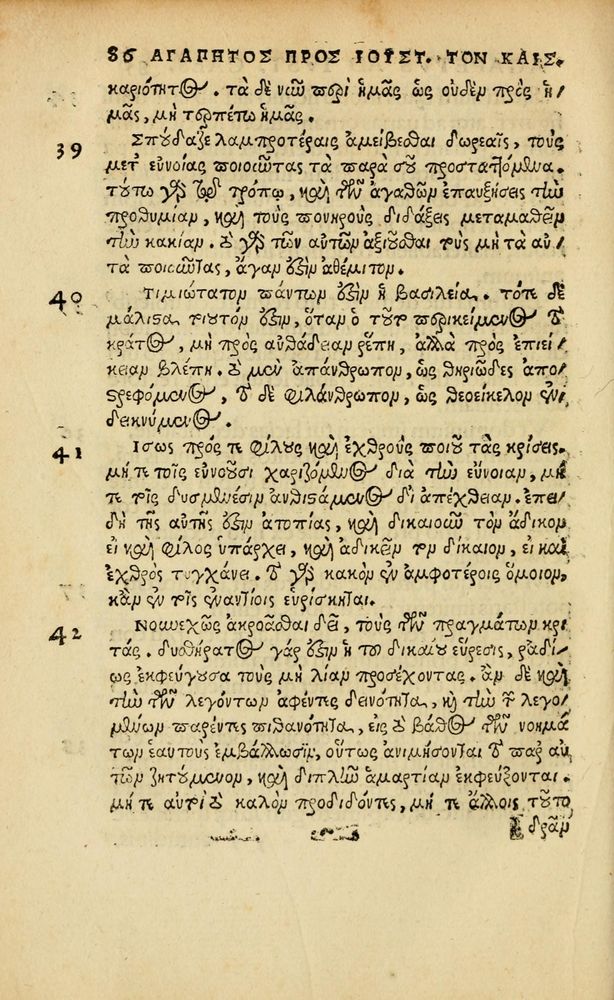 86 ΑΓΑΠΗΤΟΣ ΠΡΟΣ ΙΟΥΣΤ. ΤΟΝ ΚΑΙΣ.
καριότητος. τὰ δὲ νῦν περὶ ἡμᾶς ὡς οὐδὲν πρὸς ἡ
μᾶς, μὴ τερπέτω ἡμᾶς.
39 Σπούδαζε λαμπροτέραις ἀμείβεσθαι δωρεαῖς, τοὺς
μετ εὐνοίας ποιοῦντας τὰ παρὰ σοῦ προσταττόμενα.
τούτῳ γὰρ τῷ τρόπῳ, καὶ τῶν ἀγαθῶν ἐπαυξήσεις τὴν
προθυμίαν, καὶ τοὺς πονηροὺς διδάξεις μεταμαθεῖν
τὴν κακίαν. τὸ γὰρ τῶν αὐτῶν ἀξιοῦσθαι τοὺς μὴ τὰ αὐ/
τὰ ποιοῦντας, ἄγαν ἐστὶν ἀθέμιτον.
40 Τιμιώτατον πάντων ἐστὶν ἡ βασιλεία. τότε δὲ
μάλιστα τοιοῦτόν ἐστιν, ὅταν ὁ τοῦτο περικείμενος τὸ
κράτος, μὴ πρὸς αὐθάδειαν ῥέπῃ, ἀλλὰ πρὸς ἐπιεί/
κειαν βλέπῃ. τὸ μὲν ἀπάνθρωπον, ὡς θηριῶδες ἀπο/
στρεφόμενος, τὸ δὲ φιλάνθρωπον, ὡς θεοείκελον ἐν/
δεικνύμενος.
41 Ισως πρός τε φίλους καὶ ἐχθροὺς ποιοῦ τὰς κρίσεις.
μή τε τοῖς εὐνοοῦσι χαριζόμενος διὰ τὴν εὔνοιαν, μή
τε τοῖς δυσμενέσιν ἀνθιστάμενος δι ἀπέχθειαν. ἐπει/
δὴ τῆς αὐτῆς ἐστὶν ἀτοπίας, καὶ δικαιοῦν τὸν ἄδικον
εἰ καὶ φίλος ὑπάρχει, καὶ ἀδικεῖν τὸν δίκαιον, εἰ καὶ
ἐχθρὸς τυγχάνει. τὸ γὰρ κακὸν ἐν ἀμφοτέροις ὅμοιον,
κἂν ἐν τοῖς ἐναντίοις εὑρίσκηται.
42 Νουνεχῶς ἀκροᾶσθαι δεῖ, τοὺς τῶν πραγμάτων κρι
τάς. δυσθήρατος γάρ ἐστιν ἡ τοῦ δικαίου εὕρεσις, ῥαδί/
ως ἐκφεύγουσα τοὺς μὴ λίαν προσέχοντας. ἂν δὲ καὶ
τὴν τῶν λεγόντων ἀφέντες δεινότητα, καὶ τὴν τῶν λεγο/
μένων παρέντες πιθανότητα, εἰς τὸ βάθος τῶν νοημά
των ἑαυτοὺς ἐμβάλλωσιν, οὕτως ἀνιμήσονται τὸ παρ αὐ
τῶν ζητούμενον, καὶ διπλῆν ἁμαρτίαν ἐκφεύξονται.
μή τε αὐτοὶ τὸ καλὸν προδιδόντες, μή τε ἄλλοις τοῦτο
δρᾶν